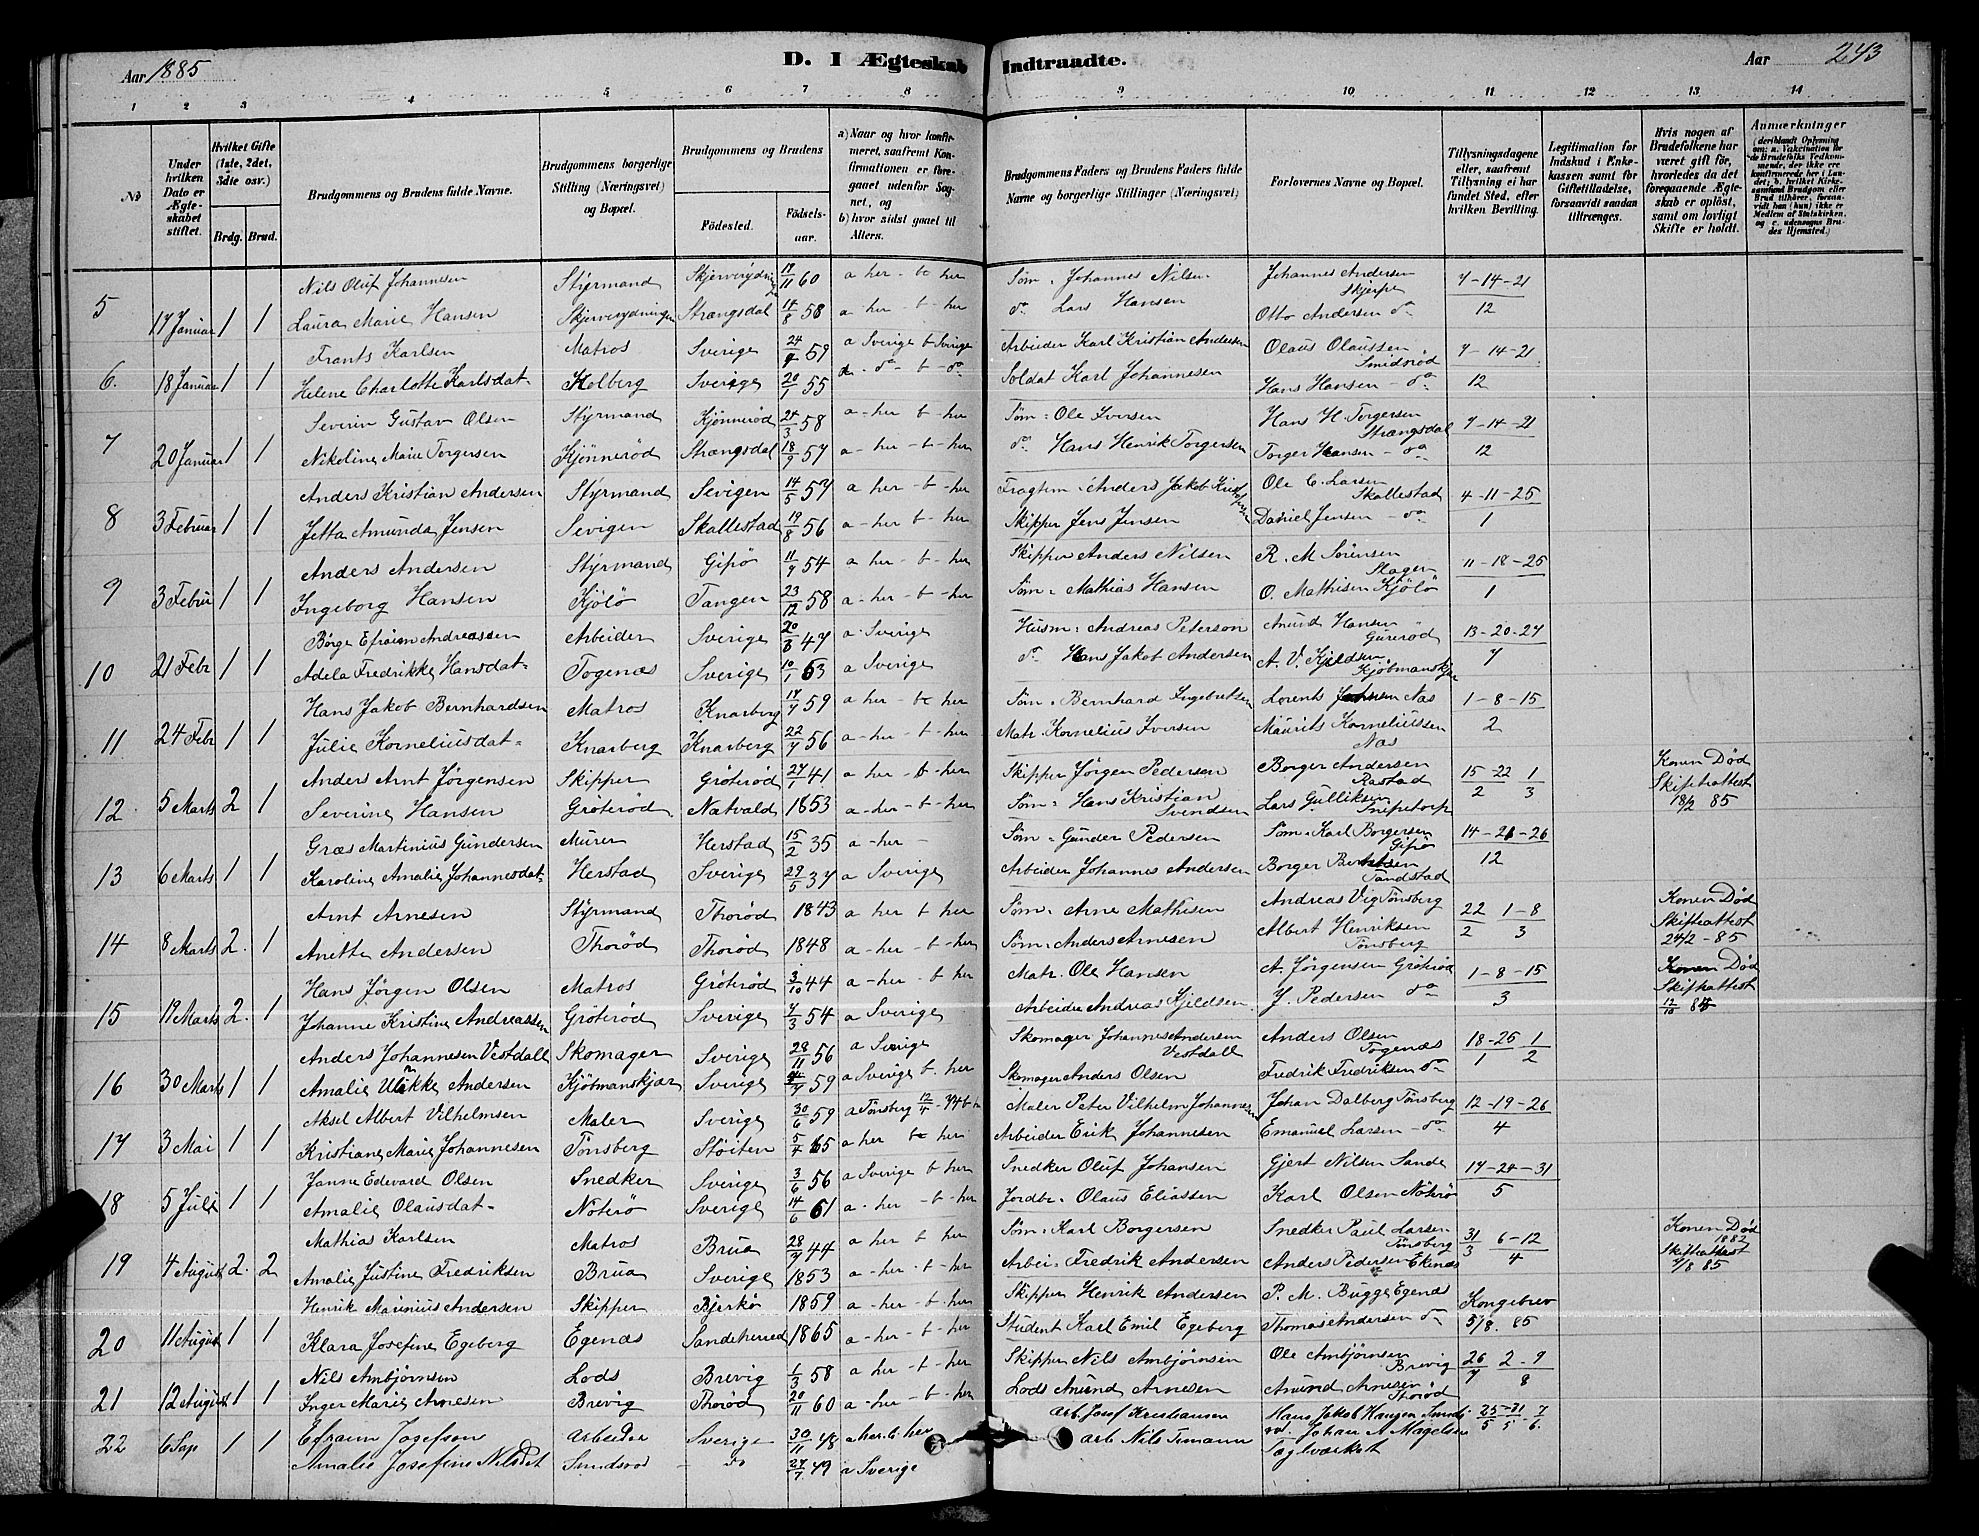 Aar 1885
D. I Ægteskab Indtraadte.
Aar
243
1 2 3 4 5 6 7 8 9 10 11 12 13 14
No
Under hvilken Dato er Ægteskabet stiftet.
Hvilket Gifte (1ste, 2det, 3die osv.)
Brdg. Brud.
Brudgommens og Brudens fulde Navne.
Brudgommens borgerlige Stilling (Næringsvei) og Bopæl.
Brudgommens og Brudens
Födested.
Födselsaar.
a) Naar og hvor konfirmeret, saafremt Konfirmationen er foregaaet udenfor Sognet, og
b) hvor sidst gaaet til Alters.
Brudgommens Faders og Brudens Faders fulde Navne og borgerlige Stillinger (Næringsvei)
Forlovernes Navne og Bopæl.
Tillysningsdagene eller, saafremt Tillysning ei har fundet Sted, efter hvilken Bevilling.
Legitimation for Indskud i Enkekassen samt for Giftetilladelse, forsaavidt saadan tiltrænges.
Hvis nogen af Brudefolkene har været gift för, hvorledes da det foregaaende Ægteskab er oplöst, samt om lovligt Skifte er holdt.
Anmærkninger (deriblandt Oplysning om: a. Vakcination for de Brudefolks Vedkommende, der ikke ere konfirmerede her i Landet; b. hvilket Kirkesamfund Brudgom eller Brud tilhörer, forsaavidt han (hun) ikke er Medlem af Statskirken, og c. udensogns Brudes Hjemsted.)
5 17 Januar 1 1
Nils Oluf Johannesen Styrmand 17/11 60 a her - b her Søm. Johannes Nilsen Johannes Andersen Skjerpe 7-14-21
Laura Marie Hansen Strængsdal 14/8 58 a - her - b - her do Lars Hansen Otto Andersen do 12
6. 18 Januar 1 1
Frants Karlsen Matros Sverige 24/9 59 a Sverige b Sverige Arbieder Karl Kristian Andersen Olaus Olaussen Smidsrød 7-14-21
Helene Charlotte Karlsdat. Holberg Sverige 20/1 55 a - do - b - do Soldat Karl Johannesen Hans Hansen - do 12
7 20 Januar 1 1
Severin Gustav Olsen Styrmand Kjønnerød 24/3 58 a - her b - her Søm: Ole Iversen Hans H. Torgersen Strængsdal 7-14-21
Nikoline Marie Torgersen Kjønnerød Strængsdal 18/9 57 a - her - b - her do Hans Henrik Torgersen Torger Hansen - do 12
8 3 Februar 1 1
Anders Kristian Andersen Styrmand Sevigen 14/5 57 a - her - b - her Fragtem. Anders Jakob Ole C. Larsen Skallestad 4-11-25
Jetta Amunda Jensen Sevigen Skallestad 19/8 56 a - her b - her Skipper Jens Jensen Daniel Jensen - do 1
9 3 Febru 1 1
Anders Andersen Styrmand Gipø 11/9 54 a - her - b - her Skipper Anders Nilsen R. M. Sørensen Slagen 11-18-25
Ingeborg Hansen Kjølø Tangen 23/12 58 a - her - b - her Søm: Mathias Hansen O. Mathisen Kjølø 1
10 21 Febr 1 1
Børge Efraim Andreassen Arbeider Sverige 20/8 47 a Sverige Husm: Andreas Peterson Anund Hansen 13-20-27
Adela Fredrikke Hansdat. Togenæs Sverige 10/1 63 a Sverige do Hans Jakob Andersen A. V. Kjeldsen Kjøbmanskjær 7
11 24 Febr 1 1
Hans Jakob Bernhardsen Matros Knarberg 17/7 59 a her - b her Søm. Bernhard Ingebretsen Lorents Næs 1-8-15
Julie Korneliusdat. Knarberg Knarberg 22/7 56 a - her - b - her Matr. Kornelius Iversen Maurits Korneliussen Næs 2
12 5 Marts 2 1
Anders Arnt Jørgensen Skipper Grøterød 27/1 41 a - her - b - her Skipper Jørgen Pedersen Borger Andersen Rastad 15-22/2 1/3 Konen Død Skifteattest 18/2 85
Severine Hansen Grøterød Natvald 1853 a - her - b - her Søm: Hans Kristian Svendsen Lars Gulliksen Snipetorp
13 6 Marts 1 1
Græs Martinius Gundersen Murer Herstad 15/2 35 a - her - Søm. Gunder Pedersen Søm. Karl Borgersen Gipø 14-21-26
Karoline Amalie Johannesdat. Herstad Sverige 29/5 37 a Sverige Arbeider Johannes Andersen Borger 12
14 8 Marts 2. 1
Arnt Arnesen Styrmand Thorød 1843 a - her b - her Søm. Arne Mathisen Andreas Vig Tønsberg 22/2 1-8/3 Konen Død Skifteattest 24/2 - 85
Anette Andersen Thorød Thorød 1848 a - her - b - her Søm. Anders Arnesen Albert Henriksen Tønsberg
15 19 Marts 2. 1
Hans Jørgen Olsen Matros Grøterød 3/10 44 a - her - b her Matr. Ole Hansen A. Jørgensen Grøterød 1-8-15 Konen Død Skifteattest 12/10 85
Johanne Kristine Andreassen Grøterød Sverige 7/3 54 a Sverige Arbeider Andreas Kjeldsen J. Pedersen do 3
16 30 Marts 1 1
Anders Johannesen Vestdall Skomager Sverige 28/11 56 a Sverige Skomager Johannes Andersen Vestdall Anders Olsen Togenæs 18-25/1 1/2
Amalie Ulrikke Andersen Kjøbmanskjær Sverige 59 a Sverige b. her Skomager Anders Olsen Fredrik Fredriksen do
17 3 Mai 1 1
Aksel Albert Vilhelmsen Maler Sverige 30/6 59 a Tønsberg 12/4 - 74 b Maler Peter Vilhelm Johannesen Johan Dalberg Tønsberg 12-19-26
Kristiane Marie Johannesen Tønsberg Støiten 5/4 65 a her b her Arbeider Erik Johannesen Emanuel Larsen - do 4
18 5 Juli 1 1
Janne Edevard Olsen Snedker Sverige 3/6 56 a Sverige b her Snedker Oluf Johansen Gjert Nilsen Sande 17-24-31
Amalie Olausdat. Nøterø Sverige 14/6 61 a. her - b - her Jordbr. Olaus Eliassen Karl Olsen Nøterø 5
19 4 August 2. 2
Mathias Karlsen Matros Brua 28/9 44 a her b her Søm. Karl Borgersen Snedker Paul Larsen Tønsberg 31/3 6-12/4 Konen Død 1882 Skifteattest 4/8 85
Amalie Justine Fredriksen Brua Sverige 1853 a - her - b - her Arbei: Fredrik Andersen Anders Pedersen Ekenæs
20 11 August 1 1
Henrik Marinius Andersen Skipper Bjerkø 1859 a - her - b - her Skipper Henrik Andersen P. M. Bugge Egenæs Kongebrev 5/8. 85
Klara Josefine Egeberg Egenæs Sandeherred 1865 a - her - b - her Student Karl Emil Egeberg Thomas Andersen do
21 12 August 1 1
Nils Ambjørnsen Lods Brevig 1/3 58 a her - b - her Skipper Nils Ambjørnsen Ole Ambjørnsen Brevig 26/7 2-9/8
Inger Marie Arnesen Brevig Thorød 20/11 60 a - her - b - her Lods Anund Arnesen Anund Arnesen Thorød
22 6 Sep 1 1
Efraim Josefson Arbeider Sverige 30/11 48 a her. b. her Arb. Josef Kristiansen Hans Jakob Hansen Smidsrød. 25/5-31/5 7/6
Amalie Josefine Nilsdat Smidsrød - do 27/7 49 a Sverige Arb Nils Timann Johan A Magelsen Taglværket